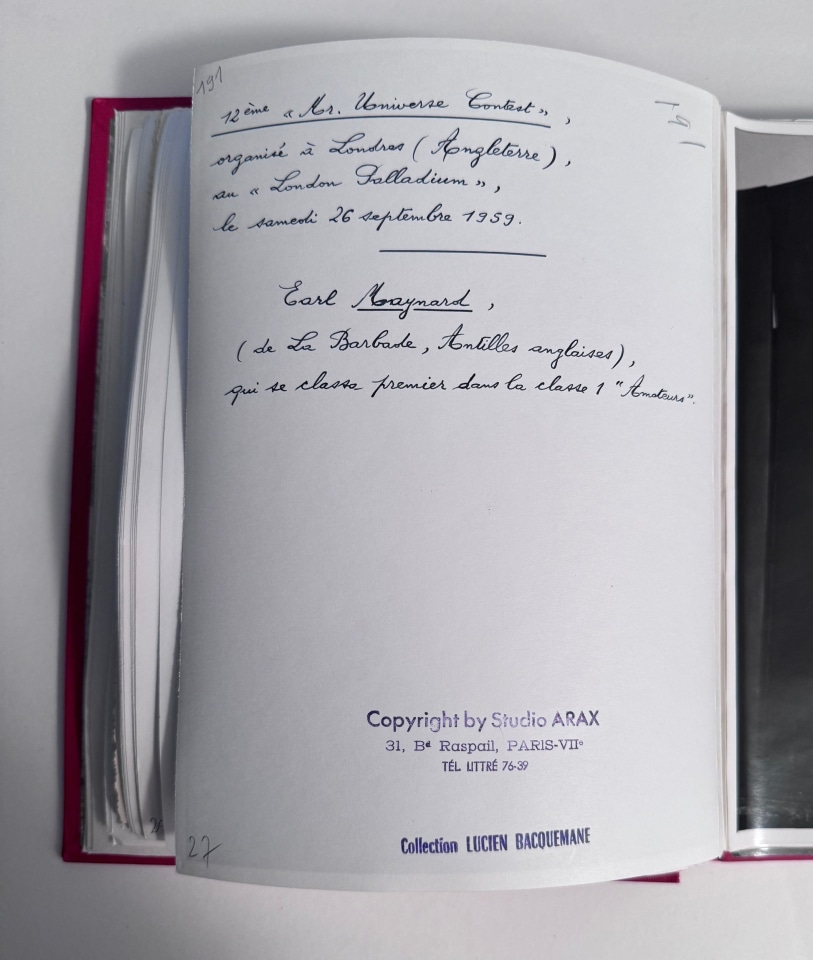 191
191
12ème « Mr. Universe Contest »,
organisé à Londres (Angleterre),
au « London Palladium »,
le samedi 26 septembre 1959.
Earl Maynard,
(de La Barbade, Antilles anglaises),
qui se classa premier dans la classe 1 "Amateurs".
Copyright by Studio ARAX
31, Bd Raspail, PARIS-VIIe
TÉL LITTRÉ 76-39
Collection LUCIEN BACQUEMANE
27